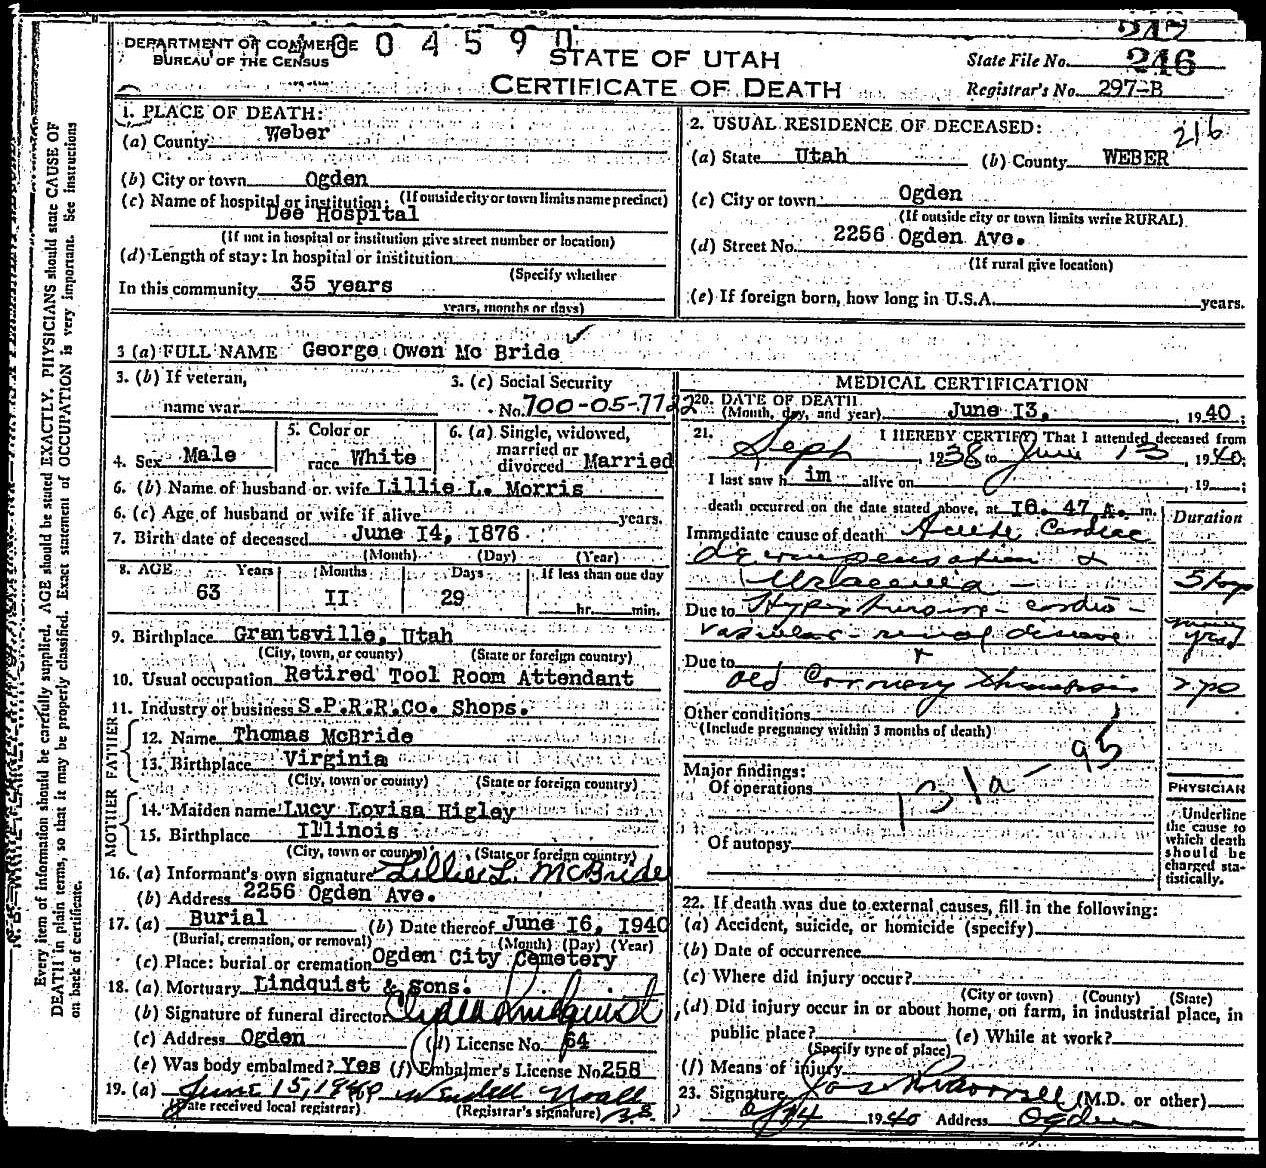 247
DEPARTMENT OF COMMERCE
BUREAU OF THE CENSUS
004590
STATE OF UTAH
CERTIFICATE OF DEATH
State File No. 246
Registrar's No. 297-B
1. PLACE OF DEATH:
(a) County Weber
(b) City or town Ogden
(If outside city or town limits name precinct)
(c) Name of hospital or institution:
Dee Hospital
(If not in hospital or institution give street number or location)
(d) Length of stay: In hospital or institution
(Specify whether
In this community 35 years
years, months or days)
2. USUAL RESIDENCE OF DECEASED: 216
(a) State Utah (b) County WEBER
(c) City or town Ogden
(If outside city or town limits write RURAL)
(d) Street No. 2256 Ogden Ave.
(If rural give location)
(e) If foreign born, how long in U.S.A. years.
3 (a) FULL NAME George Owen Mc Bride
3. (b) If veteran,
name war
3. (c) Social Security
No. 700-05-7722
4. Sex Male
5. Color or
race White
6. (a) Single, widowed,
married or
divorced Married
6. (b) Name of husband or wife Lillie L. Morris
6. (c) Age of husband or wife if alive years.
7. Birth date of deceased June 14, 1876
(Month) (Day) (Year)
8. AGE Years Months Days If less than one day
63 II 29 hr. min.
9. Birthplace Grantsville, Utah
(City, town, or county) (State or foreign country)
10. Usual occupation Retired Tool Room Attendant
11. Industry or business S.P.R.R.Co. Shops.
FATHER
12. Name Thomas McBride
13. Birthplace Virginia
(City, town or county) (State or foreign country)
MOTHER
14. Maiden name Lucy Lovisa Higley
15. Birthplace Illinois
(City, town or county) (State or foreign country)
16. (a) Informant's own signature Lillie L. McBride
(b) Address 2256 Ogden Ave.
17. (a) Burial (b) Date thereof June I6, 1940
(Burial, cremation, or removal) (Month) (Day) (Year)
(c) Place: burial or cremation Ogden City Cemetery
18. (a) Mortuary Lindquist & Sons.
(b) Signature of funeral director Clyde Lindquist
(c) Address Ogden (d) License No. 64
(e) Was body embalmed? Yes (f) Embalmer's License No. 258
19. (a) June 15, 1940 Wendell Noall
(Date received local registrar) (Registrar's signature)
MEDICAL CERTIFICATION
20. DATE OF DEATH
(Month, day, and year) June I3, 1940;
21. I HEREBY CERTIFY, That I attended deceased from
Sept, 1938 to June 13, 1940;
I last saw him alive on , 19 ;
death occurred on the date stated above, at I0. 47 A. m.
Duration
Immediate cause of death Acute Cardiac
decompensation &
5 days
Due to Hypertensive - cardio-
vascular - renal disease
many yrs
Due to
old Coronary thrombosis
Other conditions
(Include pregnancy within 3 months of death)
131a - 95
Major findings:
Of operations
Of autopsy
PHYSICIAN
Underline
the cause to
which death
should be
charged sta-
tistically.
22. If death was due to external causes, fill in the following:
(a) Accident, suicide, or homicide (specify)
(b) Date of occurrence
(c) Where did injury occur?
(City or town) (County) (State)
(d) Did injury occur in or about home, on farm, in industrial place, in
public place? (e) While at work?
(Specify type of place)
(f) Means of injury
23. Signature (M.D. or other)
1940 Address Ogden
Every item of information should be carefully supplied. AGE should be stated EXACTLY. PHYSICIANS should state CAUSE OF
DEATH in plain terms, so that it may be properly classified. Exact statement of OCCUPATION is very important. See instructions
on back of certificate.